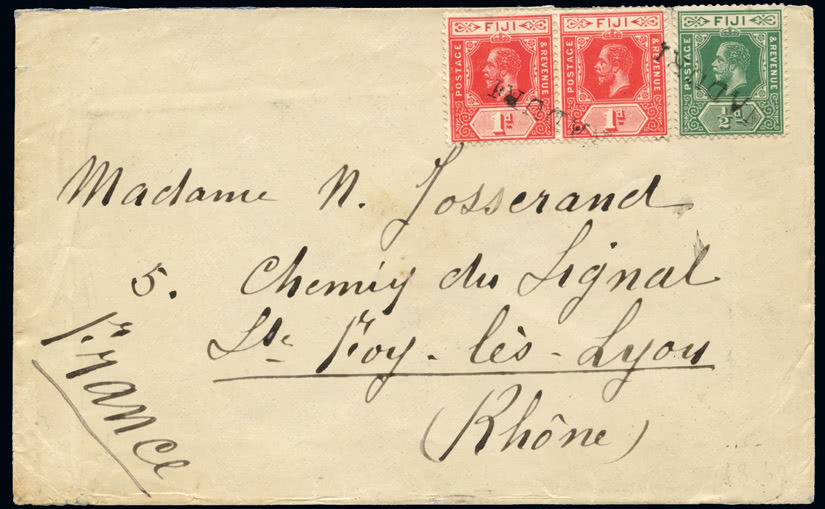 FIJI
POSTAGE & REVENUE
1d
FIJI
POSTAGE & REVENUE
1d
FIJI
POSTAGE & REVENUE
½d
Madame N. Josserand
5. Chemin du Signal
Ste Foy-lès-Lyon
(Rhône)
France